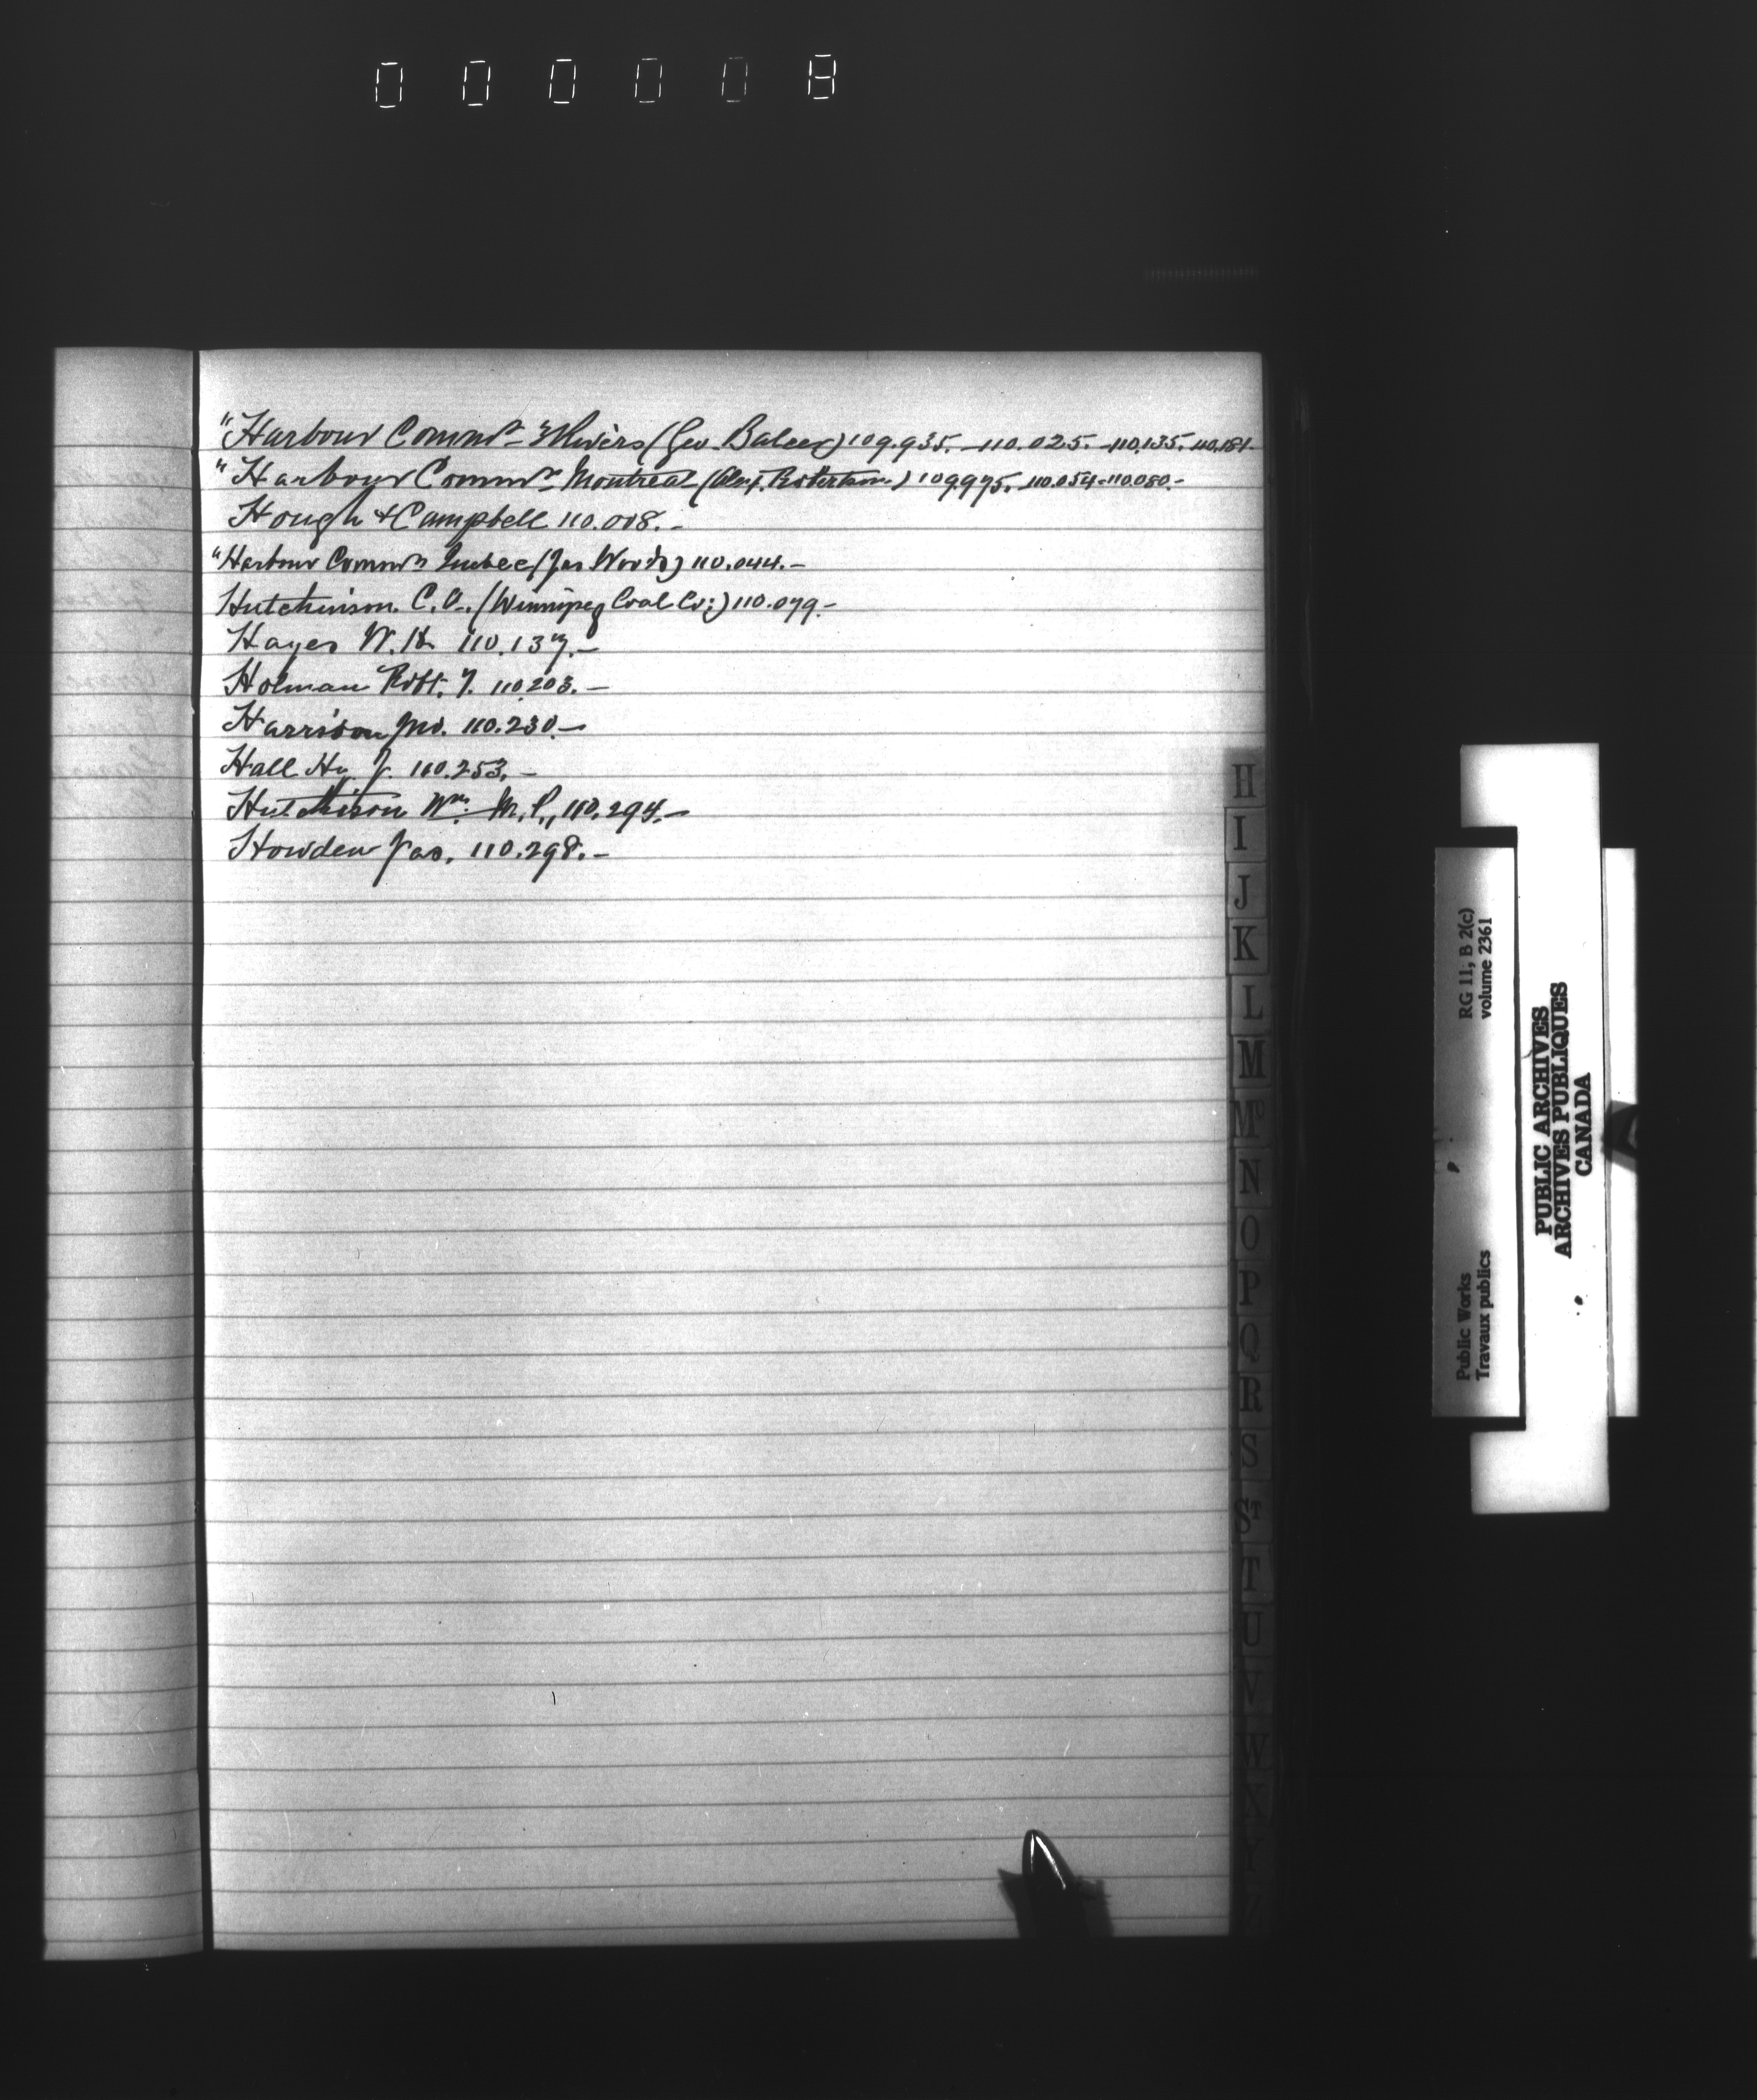 000008
"Harbour Commrs 3 Rivers (Geo. Balcer) 109.935. - 110.025. - 110.135. 110.181.
"Harbour Commrs Montreal (Alex. Robertson) 109.975. 110.054 - 110.080. -
Hough & Campbell 110.008. -
"Harbour Commrs Quebec (Jas Woods) 110.044. -
Hutchinson. C. A. (Winnipeg Coal Co:) 110.079. -
Hayes W. H. 110.137. -
Holman Robt. T. 110.203. -
Harrison Jno. 110.230. -
Hall Hy. J. 110.253. -
Hutchison Wm. M.P., 110.294. -
Howden Jas. 110.298. -
H
I
J
K
L
M
Mc
N
O
P
Q
R
S
ST
T
U
V
W
X
Y
Z
RG 11, B 2(c)
volume 2361
Public Works
Travaux publics
PUBLIC ARCHIVES
ARCHIVES PUBLIQUES
CANADA